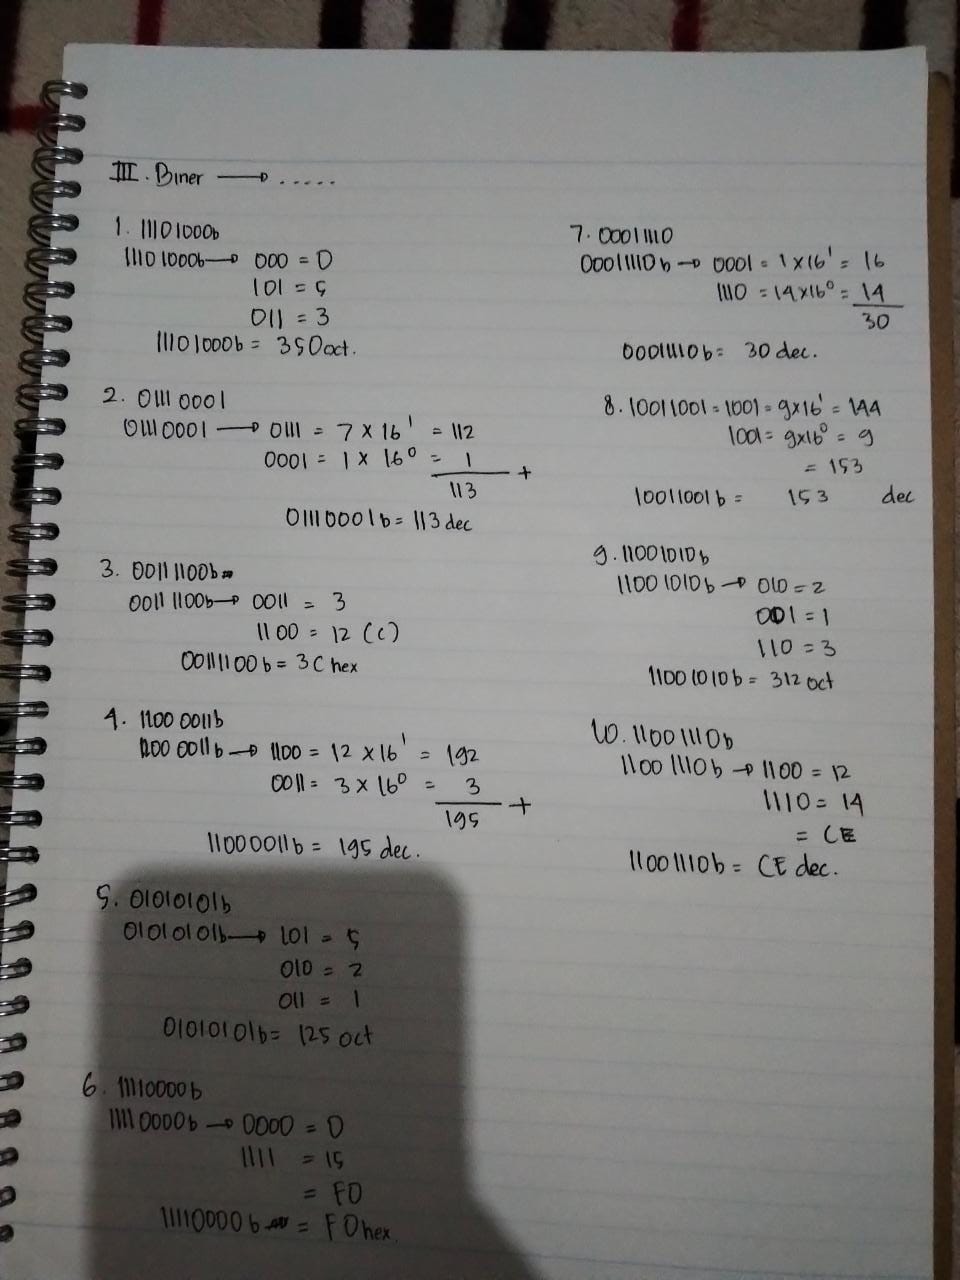 III. Biner → .....
1. 11101000b
11101000b → 000 = 0
101 = 5
011 = 3
11101000b = 350 oct.
2. 0111 0001
0111 0001 → 0111 = 7 x 16¹ = 112
0001 = 1 x 16⁰ = 1
+
113
01110001b = 113 dec
3. 0011 1100b
0011 1100b → 0011 = 3
1100 = 12 (C)
00111100b = 3C hex
4. 1100 0011b
1100 0011b → 1100 = 12 x 16¹ = 192
0011 = 3 x 16⁰ = 3
+
195
11000011b = 195 dec.
5. 01010101b
01010101b → 101 = 5
010 = 2
011 = 1
01010101b = 125 oct
6. 11110000b
11110000b → 0000 = 0
1111 = 15
= F0
11110000b = F0 hex.
7. 00011110
00011110b → 0001 = 1 x 16¹ = 16
1110 = 14 x 16⁰ = 14
30
00011110b = 30 dec.
8. 10011001 = 1001 = 9x16¹ = 144
1001 = 9x16⁰ = 9
= 153
10011001b = 153 dec
9. 11001010b
11001010b → 010 = 2
001 = 1
110 = 3
11001010b = 312 oct
10. 11001110b
11001110b → 1100 = 12
1110 = 14
= CE
11001110b = CE dec.